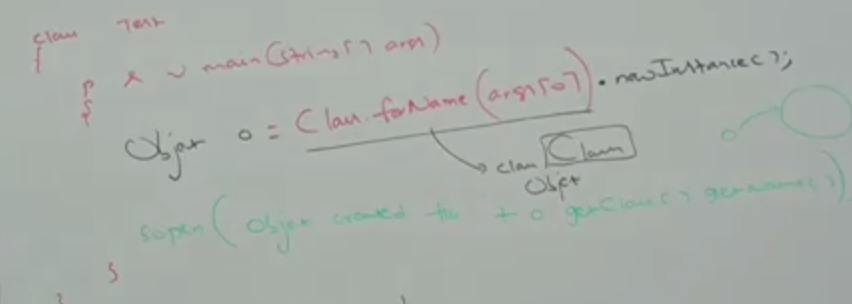 class Test
{
p s v main(String[] args)
{
Object o = Class.forName(args[0]).newInstance();
class Class
Object
o
sopln(Object created for + o getClass() getName())
}
}